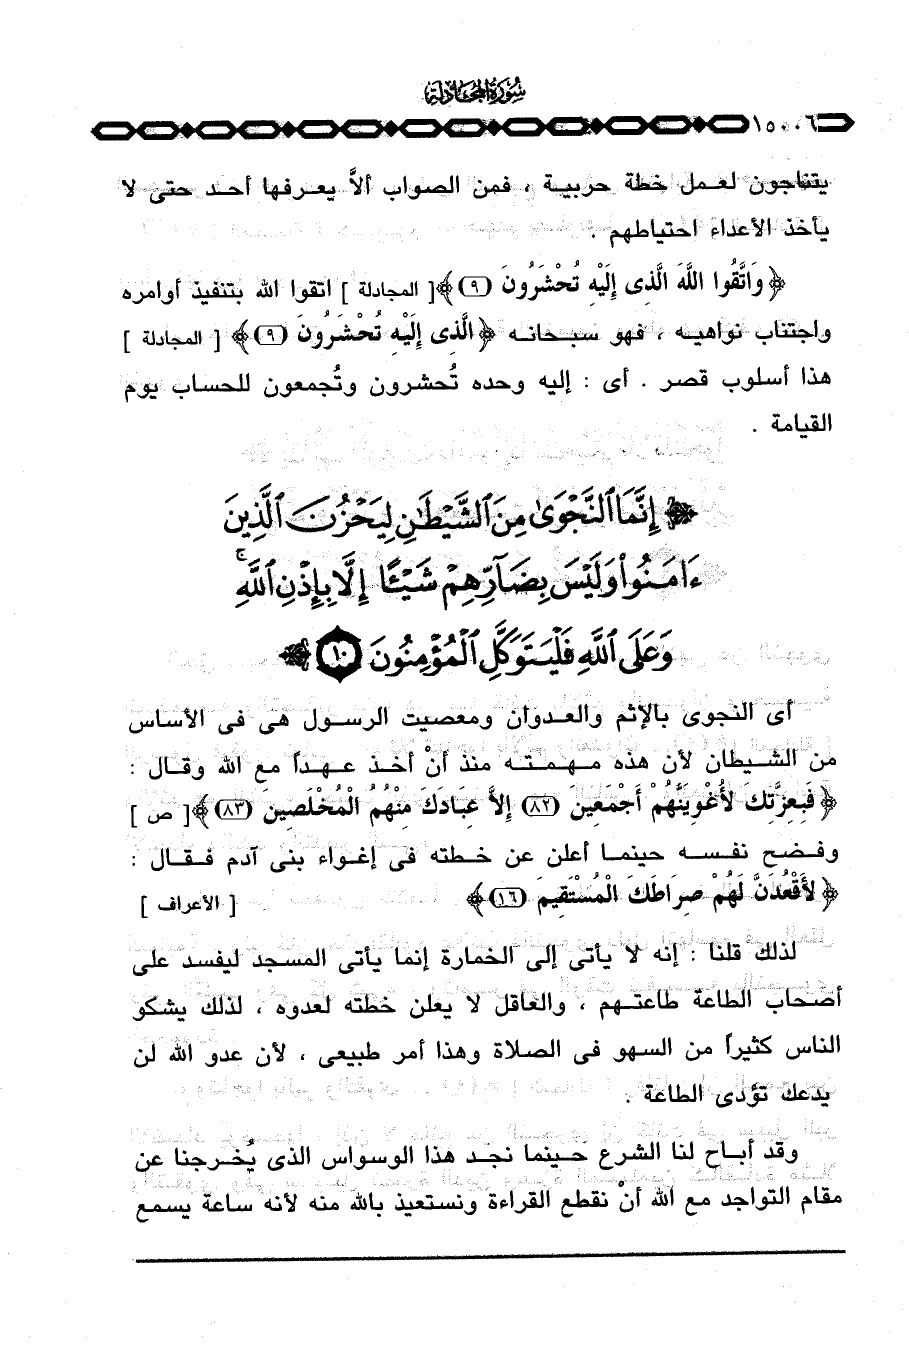 سُورَةُ المُجَادلة
١٥٠٠٦
يتناجون لعمل خطة حربية ، فمن الصواب ألاَّ يعرفها أحد حتى لا
يأخذ الأعداء احتياطهم .
﴿وَاتَّقُوا اللَّهَ الَّذِى إِلَيْهِ تُحْشَرُونَ (٩)﴾[ المجادلة ] اتقوا الله بتنفيذ أوامره
واجتناب نواهيه ، فهو سبحانه ﴿الَّذِى إِلَيْهِ تُحْشَرُونَ (٩)﴾ [ المجادلة ]
هذا أسلوب قصر . أى : إليه وحده تُحشرون وتُجمعون للحساب يوم
القيامة .
﴿ إِنَّمَا ٱلنَّجْوَىٰ مِنَ ٱلشَّيْطَٰنِ لِيَحْزُنَ ٱلَّذِينَ
ءَامَنُوا۟ وَلَيْسَ بِضَآرِّهِمْ شَيْـًٔا إِلَّا بِإِذْنِ ٱللَّهِ ۚ
وَعَلَى ٱللَّهِ فَلْيَتَوَكَّلِ ٱلْمُؤْمِنُونَ ١٠ ﴾
أى النجوى بالإثم والعدوان ومعصيت الرسول هى فى الأساس
من الشيطان لأن هذه مهمته منذ أنْ أخذ عهداً مع الله وقال :
﴿فَبِعِزَّتِكَ لأُغْوِيَنَّهُمْ أَجْمَعِينَ (٨٢) إِلاَّ عِبَادَكَ مِنْهُمُ الْمُخْلَصِينَ (٨٣)﴾[ ص ]
وفضح نفسه حينما أعلن عن خطته فى إغواء بنى آدم فقال :
﴿لأَقْعُدَنَّ لَهُمْ صِرَاطَكَ الْمُسْتَقِيمَ (١٦)﴾ [ الأعراف ]
لذلك قلنا : إنه لا يأتى إلى الخمارة إنما يأتى المسجد ليفسد على
أصحاب الطاعة طاعتهم ، والعاقل لا يعلن خطته لعدوه ، لذلك يشكو
الناس كثيراً من السهو فى الصلاة وهذا أمر طبيعى ، لأن عدو الله لن
يدعك تؤدى الطاعة .
وقد أباح لنا الشرع حينما نجد هذا الوسواس الذى يُخرجنا عن
مقام التواجد مع الله أنْ نقطع القراءة ونستعيذ بالله منه لأنه ساعة يسمع